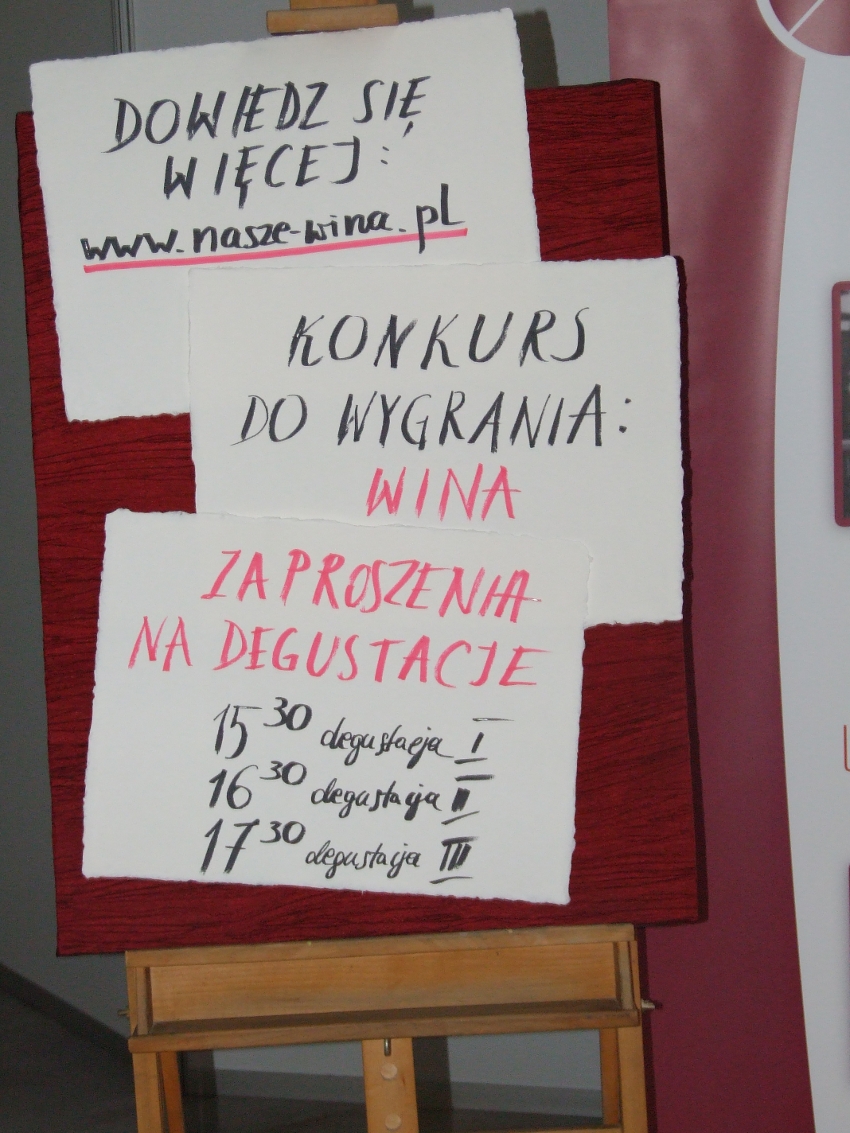 DOWIEDZ SIĘ
WIĘCEJ:
www.nasze-wina.pl
KONKURS
DO WYGRANIA:
WINA
ZAPROSZENIA
NA DEGUSTACJE
15³⁰ degustacja I
16³⁰ degustacja II
17³⁰ degustacja III